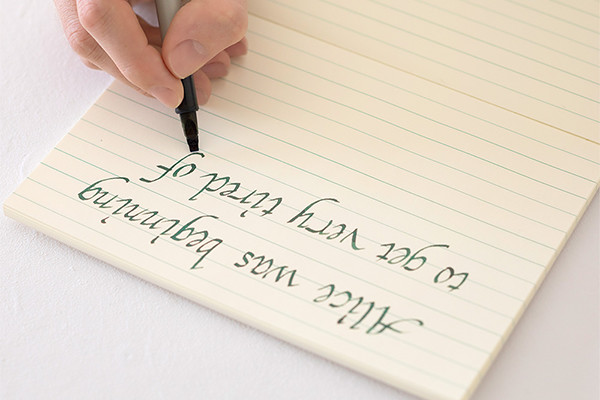 Alice was beginning
to get very tired of